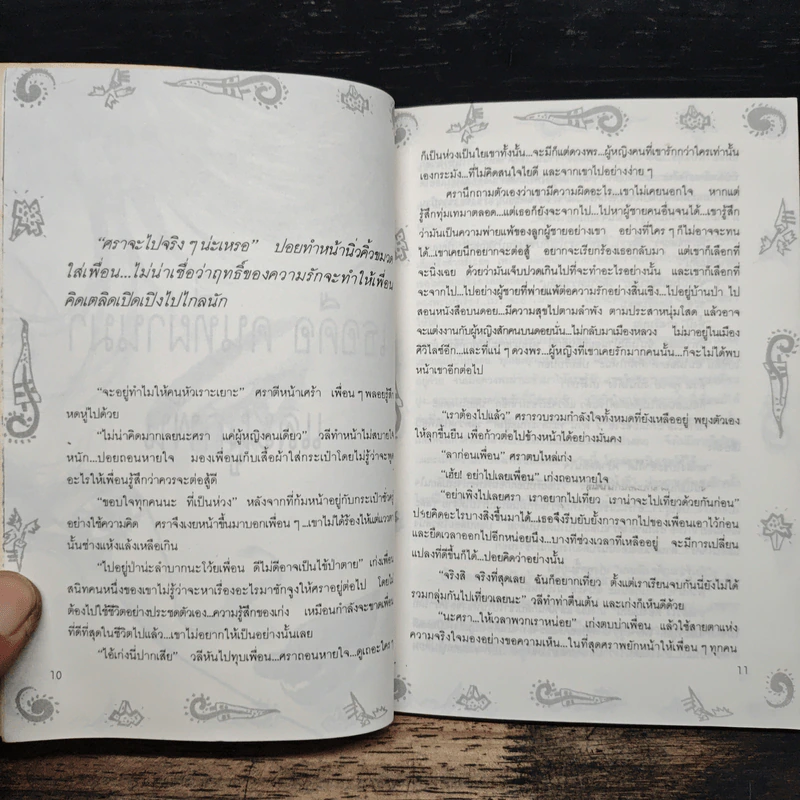 "ศราจะไปจริง ๆ น่ะเหรอ" ปอยทำหน้านิ่วคิ้วขมวด
ใส่เพื่อน...ไม่น่าเชื่อว่าฤทธิ์ของความรักจะทำให้เพื่อน
คิดเตลิดเปิดเปิงไปไกลนัก
"จะอยู่ทำไมให้คนหัวเราะเยาะ" ศราตีหน้าเศร้า เพื่อน ๆ พลอยรู้สึก
หดหู่ไปด้วย
"ไม่น่าคิดมากเลยนะศรา แค่ผู้หญิงคนเดียว" วลีทำหน้าไม่สบายใจ
นัก...ปอยถอนหายใจ มองเพื่อนเก็บเสื้อผ้าใส่กระเป๋าโดยไม่รู้ว่าจะพูด
อะไรให้เพื่อนรู้สึกว่าควรจะต่อสู้ดี
"ขอบใจทุกคนนะ ที่เป็นห่วง" หลังจากที่ก้มหน้าอยู่กับกระเป๋าชั่วครู่
อย่างใช้ความคิด ศราจึงเงยหน้าขึ้นมาบอกเพื่อน ๆ...เขาไม่ได้ร้องไห้แต่แววตา
นั้นช่างแห้งแล้งเหลือเกิน
"ไปอยู่ป่าน่ะลำบากนะโว้ยเพื่อน ดีไม่ดีอาจเป็นไข้ป่าตาย" เก่งเพื่อน
สนิทคนหนึ่งของเขาไม่รู้ว่าจะหาเรื่องอะไรมาชักจูงให้ศราอยู่ต่อไป โดยไม่
ต้องไปใช้ชีวิตอย่างประชดตัวเอง...ความรู้สึกของเก่ง เหมือนกำลังจะขาดเพื่อน
ที่ดีที่สุดในชีวิตไปแล้ว...เขาไม่อยากให้เป็นอย่างนั้นเลย
"ไอ้เก่งนี่ปากเสีย" วลีหันไปทุบเพื่อน...ศราถอนหายใจ...ดูเถอะใครๆ
10
ก็เป็นห่วงเป็นใยเขาทั้งนั้น...จะมีก็แต่ดวงพร...ผู้หญิงคนที่เขารักกว่าใครเท่านั้น
เองกระมัง...ที่ไม่คิดสนใจไยดี และจากเขาไปอย่างง่าย ๆ
ศรานึกถามตัวเองว่าเขามีความผิดอะไร...เขาไม่เคยนอกใจ หากแต่
รู้สึกทุ่มเทมาตลอด...แต่เธอก็ยังจะจากไป...ไปหาผู้ชายคนอื่นจนได้...เขารู้สึก
ว่ามันเป็นความพ่ายแพ้ของลูกผู้ชายอย่างเขา อย่างที่ใคร ๆ ก็ไม่อาจจะทน
ได้...เขาเคยนึกอยากจะต่อสู้ อยากจะเรียกร้องเธอกลับมา แต่เขาก็เลือกที่
จะนิ่งเฉย ด้วยว่ามันเจ็บปวดเกินไปที่จะทำอะไรอย่างนั้น และเขาก็เลือกที่
จะจากไป...ไปอย่างผู้ชายที่พ่ายแพ้ต่อความรักอย่างสิ้นเชิง...ไปอยู่บ้านป่า ไป
สอนหนังสือบนดอย...มีความสุขไปตามลำพัง ตามประสาหนุ่มโสด แล้วอาจ
จะแต่งงานกับผู้หญิงสักคนบนดอยนั้น...ไม่กลับมาเมืองหลวง ไม่มาอยู่ในเมือง
ศิวิไลซ์อีก...และที่แน่ ๆ ดวงพร...ผู้หญิงที่เขาเคยรักมากคนนั้น...ก็จะไม่ได้พบ
หน้าเขาอีกต่อไป
"เราต้องไปแล้ว" ศรารวบรวมกำลังใจทั้งหมดที่ยังเหลืออยู่ พยุงตัวเอง
ให้ลุกขึ้นยืน เพื่อก้าวต่อไปข้างหน้าได้อย่างมั่นคง
"ลาก่อนเพื่อน" ศราตบไหล่เก่ง
"เฮ้ย! อย่าไปเลยเพื่อน" เก่งถอนหายใจ
"อย่าเพิ่งไปเลยศรา เราอยากไปเที่ยว เราน่าจะไปเที่ยวด้วยกันก่อน"
ปอยคิดอะไรบางสิ่งขึ้นมาได้...เธอจึงรีบยับยั้งการจากไปของเพื่อนเอาไว้ก่อน
และยืดเวลาออกไปอีกหน่อยนึง...บางทีช่วงเวลาที่เหลืออยู่ จะมีการเปลี่ยน
แปลงที่ดีขึ้นก็ได้...ปอยคิดว่าอย่างนั้น
"จริงสิ จริงที่สุดเลย ฉันก็อยากเที่ยว ตั้งแต่เราเรียนจบกันนี่ยังไม่ได้
รวมกลุ่มกันไปเที่ยวเลยนะ" วลีทำท่าตื่นเต้น และเก่งก็เห็นดีด้วย
"นะศรา...ให้เวลาพวกเราหน่อย" เก่งตบบ่าเพื่อน แล้วใช้สายตาแห่ง
ความจริงใจมองอย่างขอความเห็น...ในที่สุดศราพยักหน้าให้เพื่อน ๆ ทุกคน
11